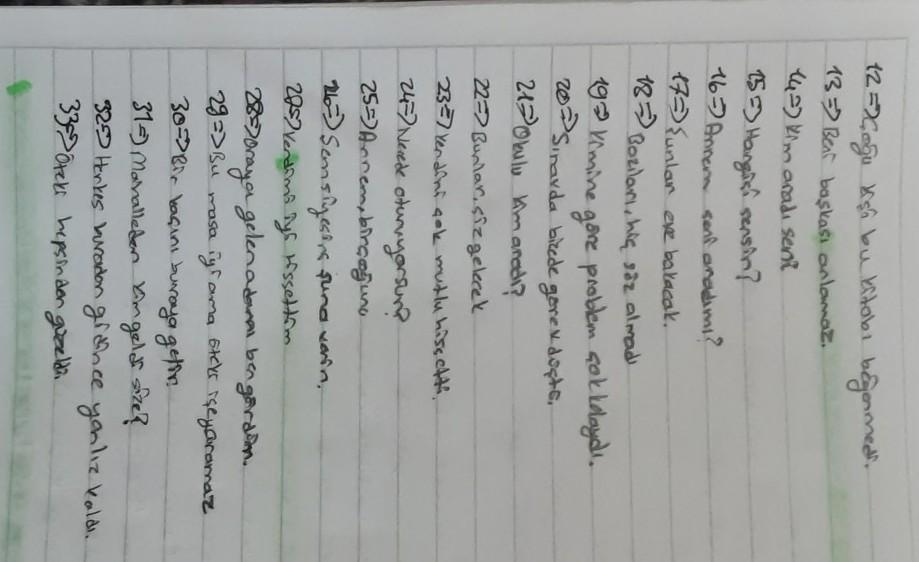 12⇒ Çoğu kişi bu kitabı beğenmedi.
13⇒ Beni başkası anlamaz.
14⇒ Kim aradı seni?
15⇒ Hangisi sensin?
16⇒ Annem seni aradımı?
17⇒ Şunlar eve bakacak.
18⇒ Bazıları, hiç söz almadı
19⇒ Kimine göre problem çok kolaydı.
20⇒ Sınavda bizede görev düştü.
21⇒ Okulu kim aradı?
22⇒ Bunları, siz gelerek
23⇒ Kendini çok mutlu hissetti.
24⇒ Nerede oturuyorsun?
25⇒ Annem, birçoğunu
26⇒ Sen şuna verin.
27⇒ Kendimi iyi hissettim
28⇒ Oraya gelen adamı ben gördüm.
29⇒ Bu masa iyi ama öteki işeyaramaz
30⇒ Bir kaçını buraya getir.
31⇒ Mahalleden kim geldi size?
32⇒ Herkes buradan gidince yanlız kaldı.
33⇒ Öteki hepsinden güzeldi.